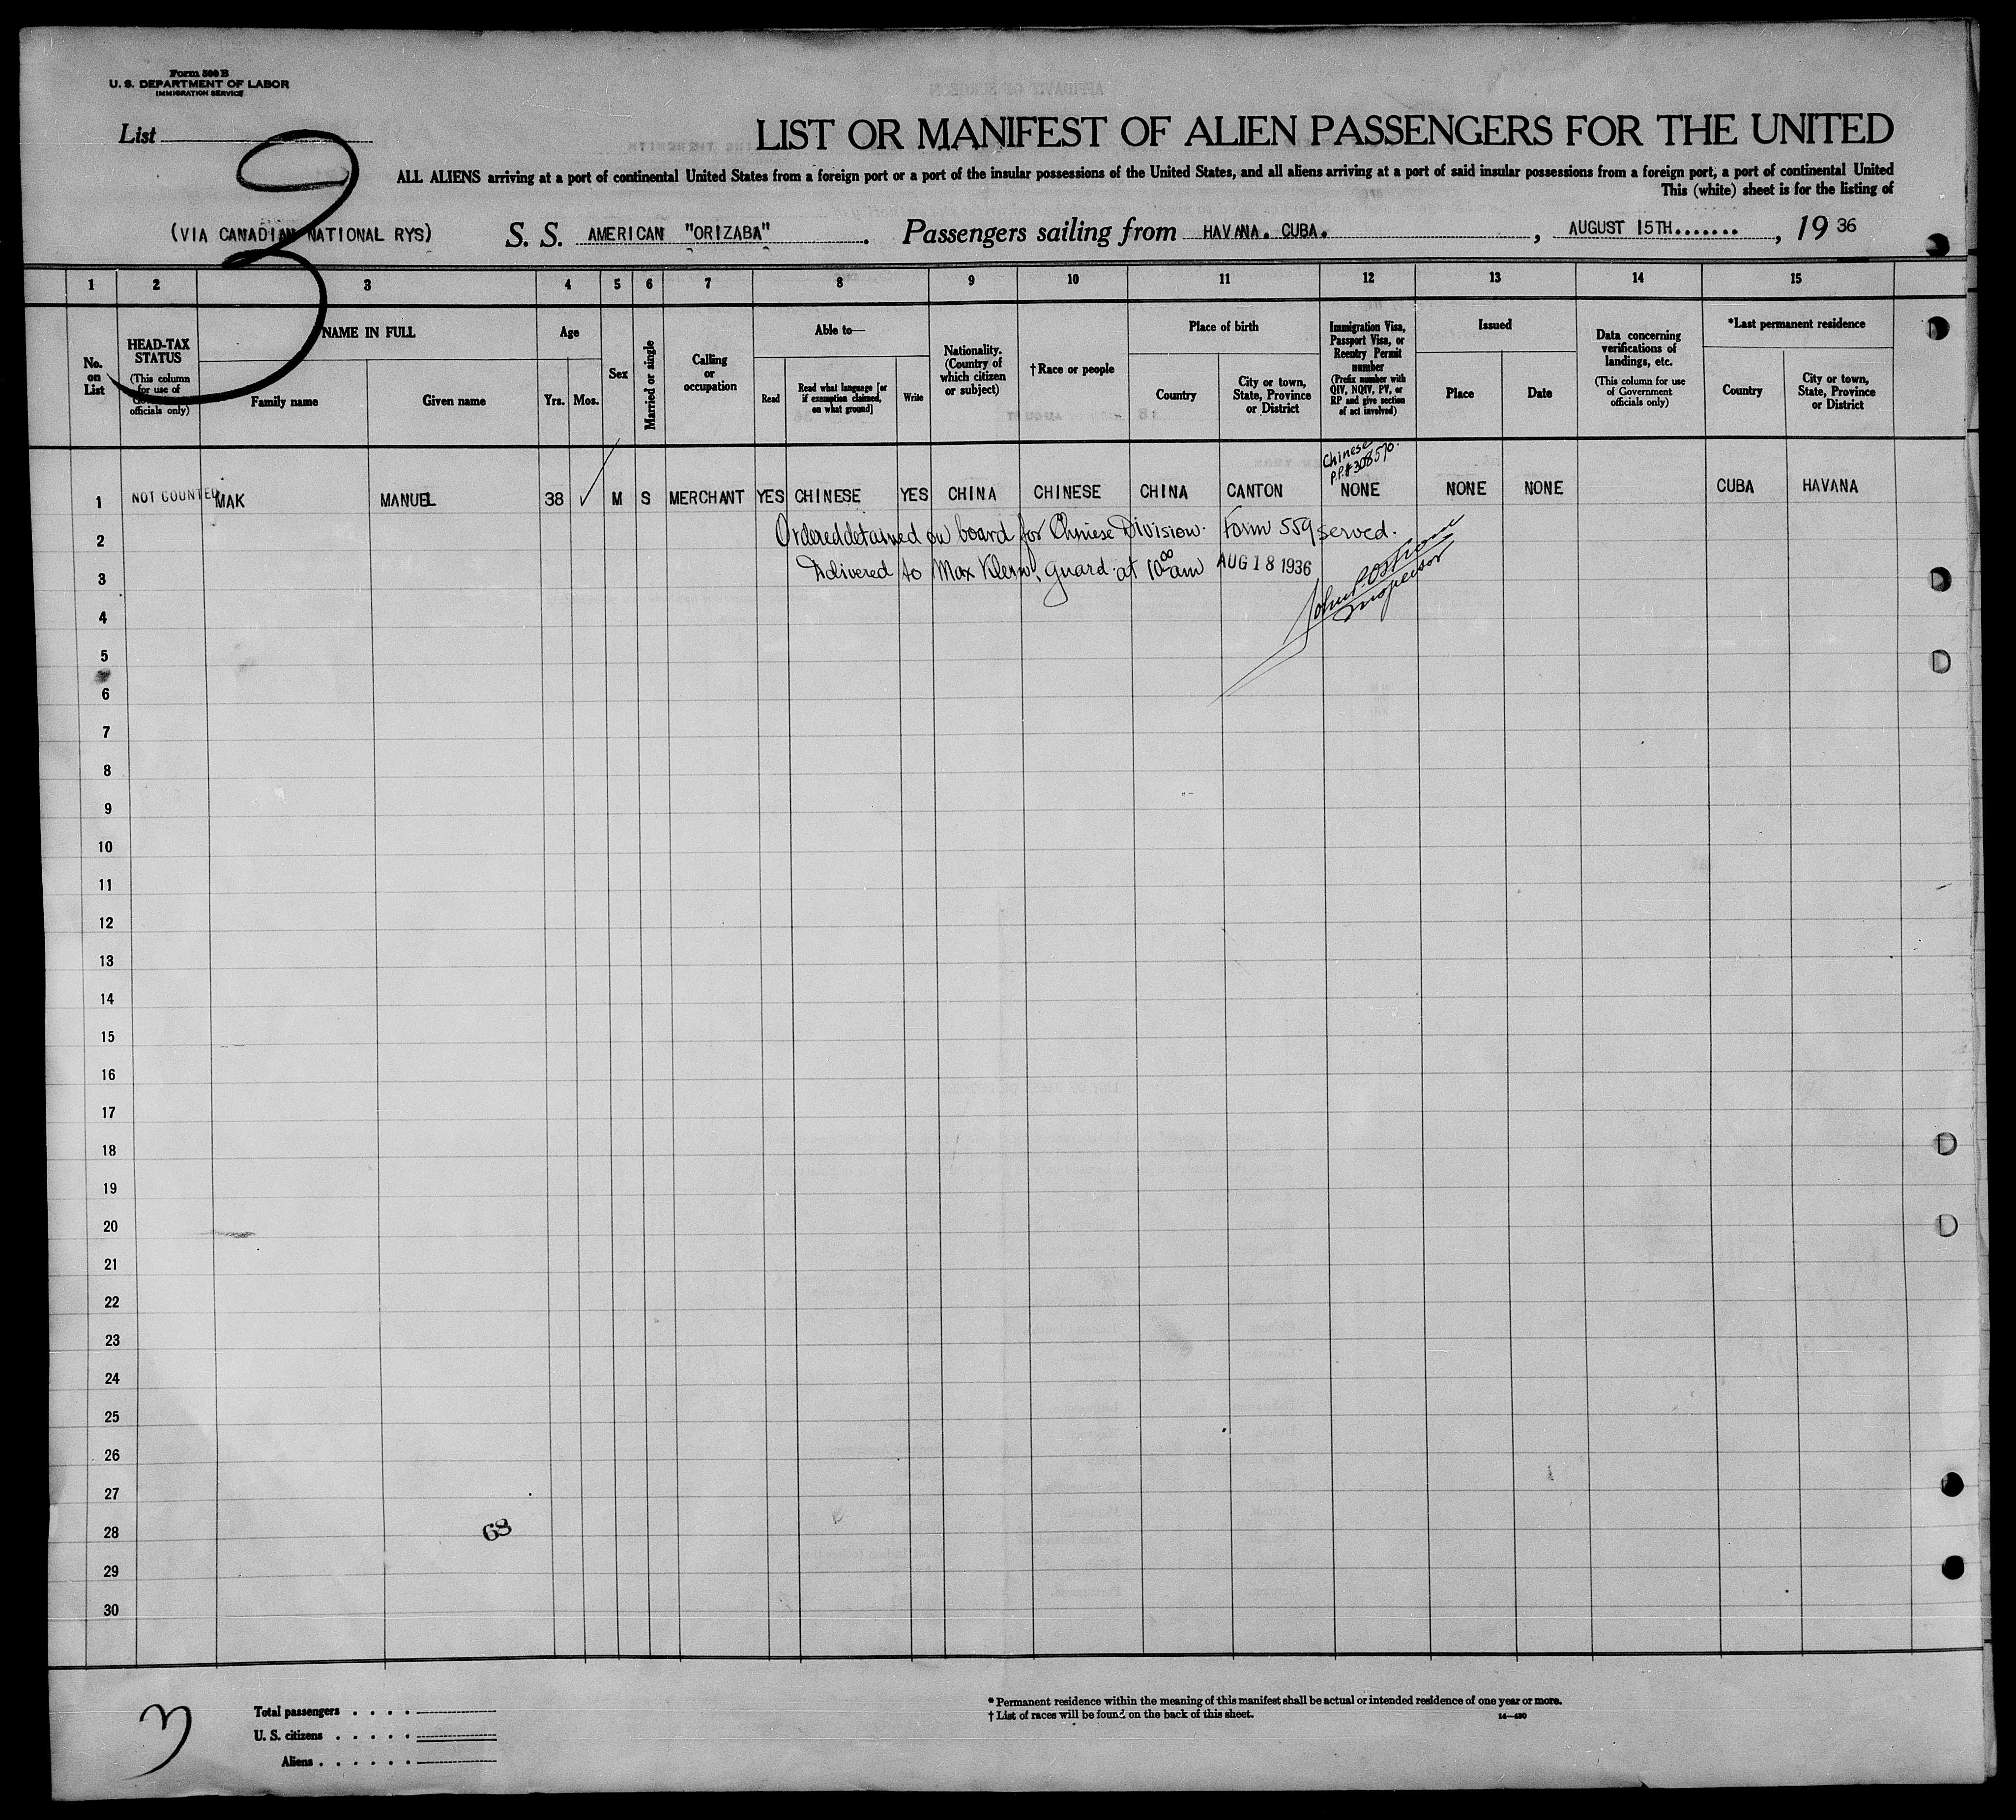 Form 500 B
U. S. DEPARTMENT OF LABOR
IMMIGRATION SERVICE
List
3
LIST OR MANIFEST OF ALIEN PASSENGERS FOR THE UNITED
ALL ALIENS arriving at a port of continental United States from a foreign port or a port of the insular possessions of the United States, and all aliens arriving at a port of said insular possessions from a foreign port, a port of continental United
This (white) sheet is for the listing of
(VIA CANADIAN NATIONAL RYS) S. S. AMERICAN "ORIZABA". Passengers sailing from HAVANA. CUBA. , AUGUST 15TH......., 19 36
1 2 3 4 5 6 7 8 9 10 11 12 13 14 15
No. on List
HEAD-TAX STATUS
(This column for use of Government officials only)
NAME IN FULL
Family name
Given name
Age
Yrs. Mos.
Sex
Married or single
Calling or occupation
Able to—
Read
Read what language [or if exemption claimed, on what ground]
Write
Nationality. (Country of which citizen or subject)
† Race or people
Place of birth
Country
City or town, State, Province or District
Immigration Visa, Passport Visa, or Reentry Permit number
(Prefix number with QIV, NQIV, PV, or RP and give section of act involved)
Issued
Place
Date
Data concerning verifications of landings, etc.
(This column for use of Government officials only)
*Last permanent residence
Country
City or town, State, Province or District
Chinese
P.P.# 308570.
1 NOT COUNTED MAK MANUEL 38 ✓ M S MERCHANT YES CHINESE YES CHINA CHINESE CHINA CANTON NONE NONE NONE CUBA HAVANA
2 Ordered detained on board for Chinese Division. Form 559 served.
3 Delivered to Max Klein, guard at 10 00 am AUG 18 1936
Inspector
4
5
6
7
8
9
10
11
12
13
14
15
16
17
18
19
20
21
22
23
24
25
26
27
28
29
30
63
3
Total passengers . . . .
U. S. citizens . . . . .
Aliens . . . . . .
* Permanent residence within the meaning of this manifest shall be actual or intended residence of one year or more.
† List of races will be found on the back of this sheet.
14—430